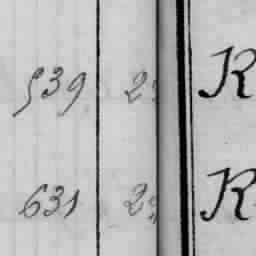 539 2 K
631 2 K